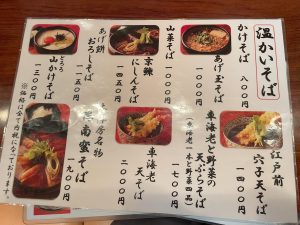 温かいそば
かけそば
八〇〇円
あげ玉そば
一〇〇〇円
山菜そば
一〇〇〇円
京鰊
にしんそば
一四五〇円
あげ餅
おろしそば
とろろ
山かけそば
一三〇〇円
江戸前
穴子天そば
一四〇〇円
車海老と野菜の
天ぷらそば
(車海老一本と野菜四品)
一七〇〇円
車海老
天そば
二〇〇〇円
房名物
南蛮そば
一九〇〇円
※価格は全て内税になっております。